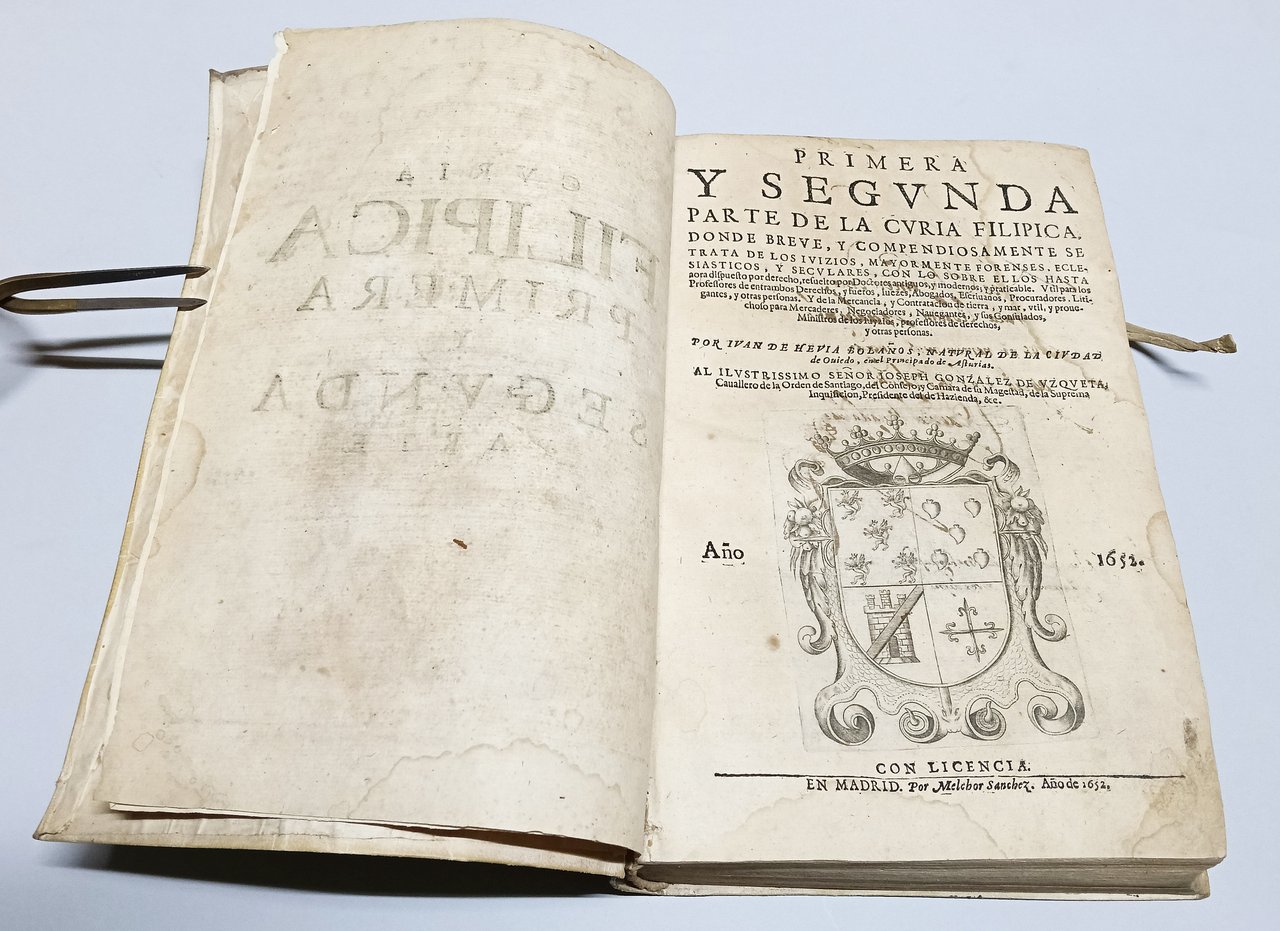 CVRIA
FILIPICA
PRIMERA
SEGVNDA
PARTE
PRIMERA
Y SEGVNDA
PARTE DE LA CVRIA FILIPICA,
DONDE BREVE, Y COMPENDIOSAMENTE SE
TRATA DE LOS IVIZIOS, MAYORMENTE FORENSES, ECLE-
SIASTICOS, Y SECVLARES, CON LO SOBRE ELLOS HASTA
aora dispuesto por derecho, resuelto por Doctores antiguos, y modernos, y praticable. Vtil para los
Professores de entrambos Derechos, y fueros, Iuezes, Abogados, Escriuanos, Procuradores, Liti-
gantes, y otras personas. Y de la Mercancia, y Contratacion de tierra, y mar, vtil, y proue-
choso para Mercaderes, Negociadores, Nauegantes, y sus Consulados,
Ministros de los Iuyzios, professores de derechos,
y otras personas.
POR IVAN DE HEVIA BOLAÑOS, NATVRAL DE LA CIVDAD
de Ouiedo, en el Principado de Asturias.
AL ILVSTRISSIMO SEÑOR IOSEPH GONZALEZ DE VZQVETA,
Cauallero de la Orden de Santiago, del Consejo, y Camara de su Magestad, de la Suprema
Inquisicion, Presidente del de Hazienda, &c.
Año 1652.
CON LICENCIA.
EN MADRID. Por Melchor Sanchez. Año de 1652.